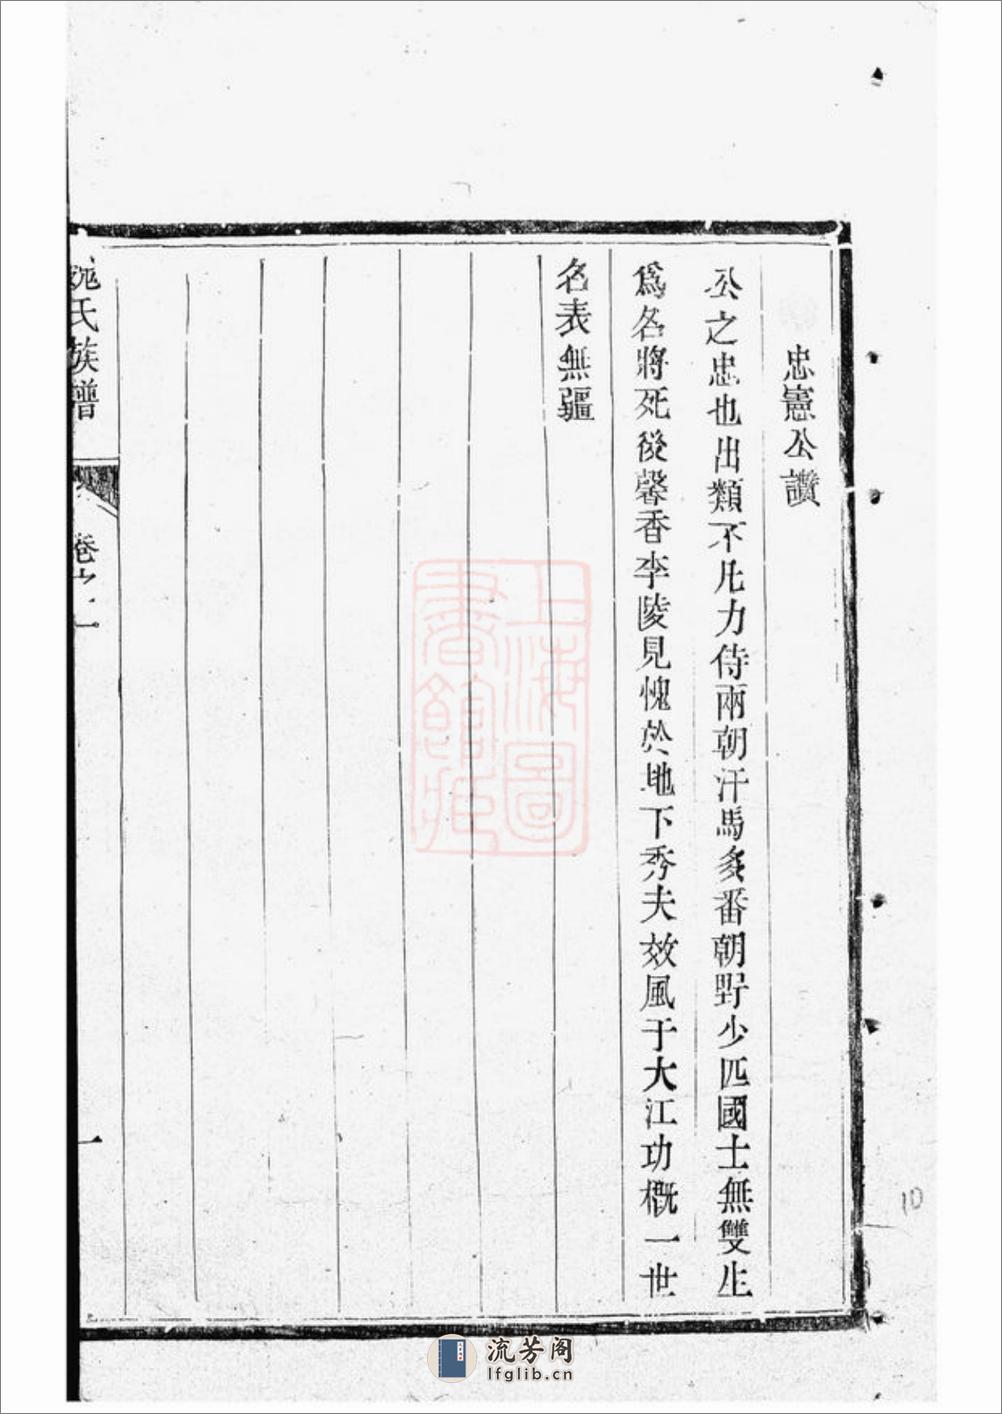 忠憲公讚
公之忠也出類不凡力侍兩朝汗馬多番朝野少匹國士無雙生
爲名將死後馨香李陵見愧於地下秀夫效風于大江功概一世
名表無疆
氏族譜
卷之一
一
上海圖
書館藏
10
流芳阁
lfglib.cn